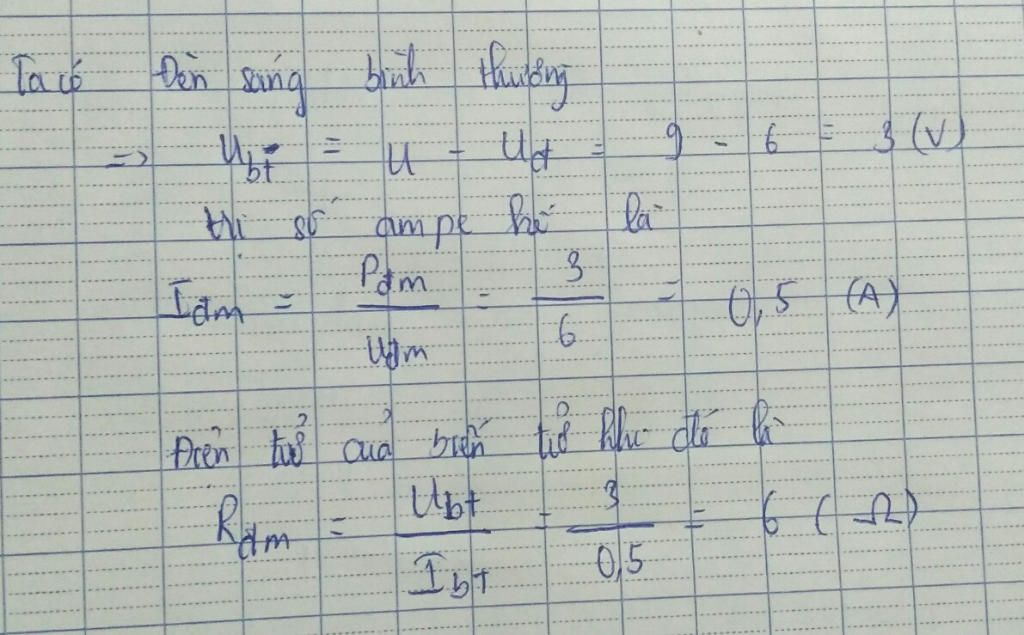 Ta có Đèn sáng bình thường
=> U_bt = U - U_đ = 9 - 6 = 3 (V)
thì số ampe kế là
I_đm = P_đm / U_đm = 3 / 6 = 0,5 (A)
Điện trở của biến trở khi đó là
R_đm = U_bt / I_bt = 3 / 0,5 = 6 (Ω)